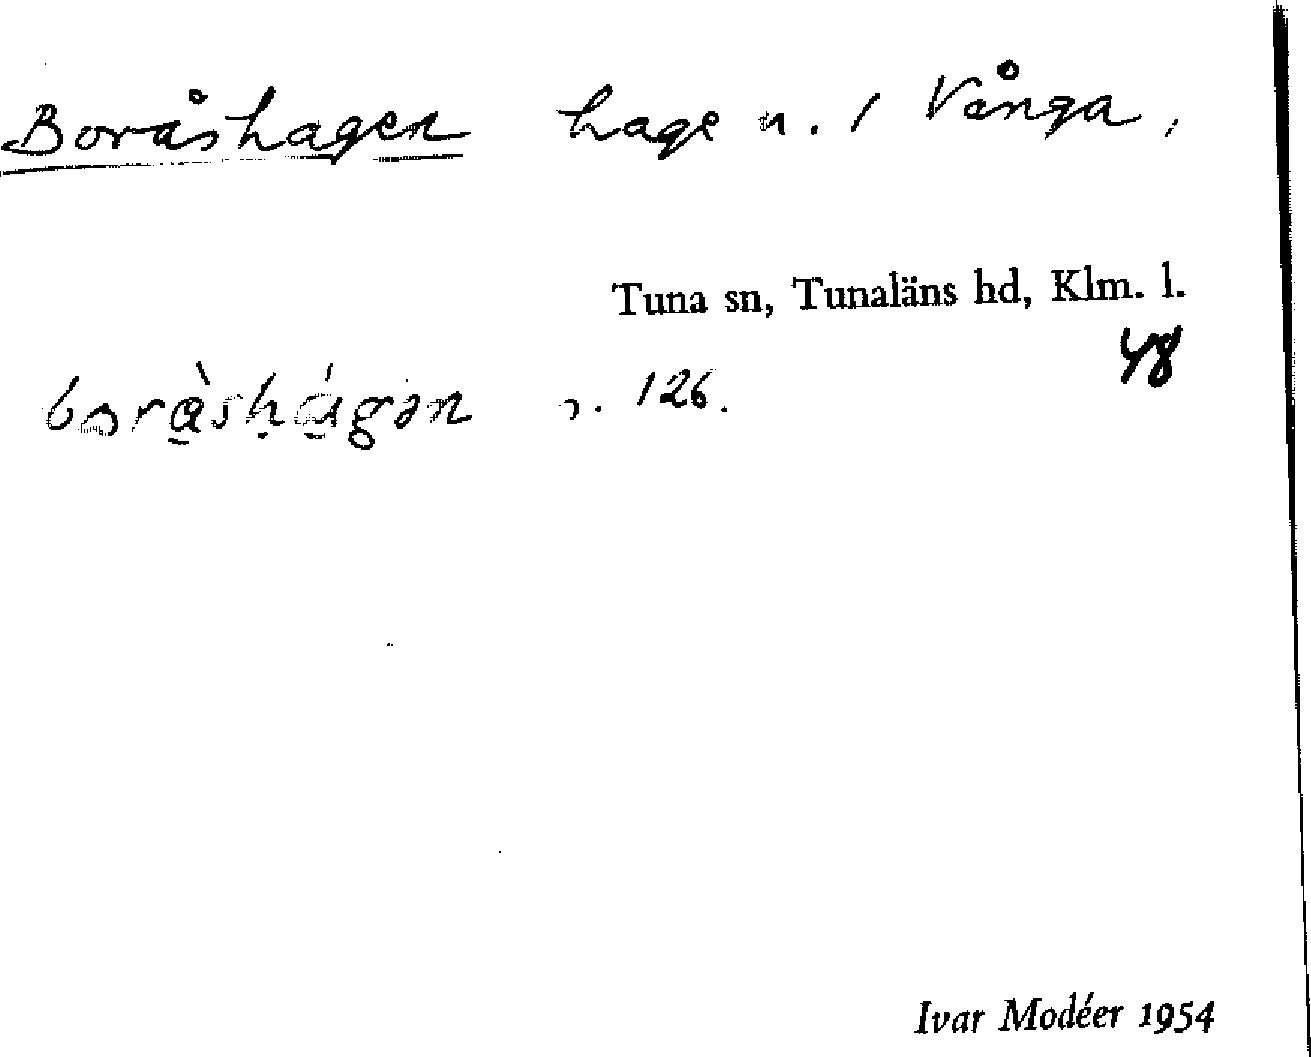 Boråshagen hage u. / Vånga,
Tuna sn, Tunaläns hd, Klm. l.
48
n. 126.
Ivar Modéer 1954